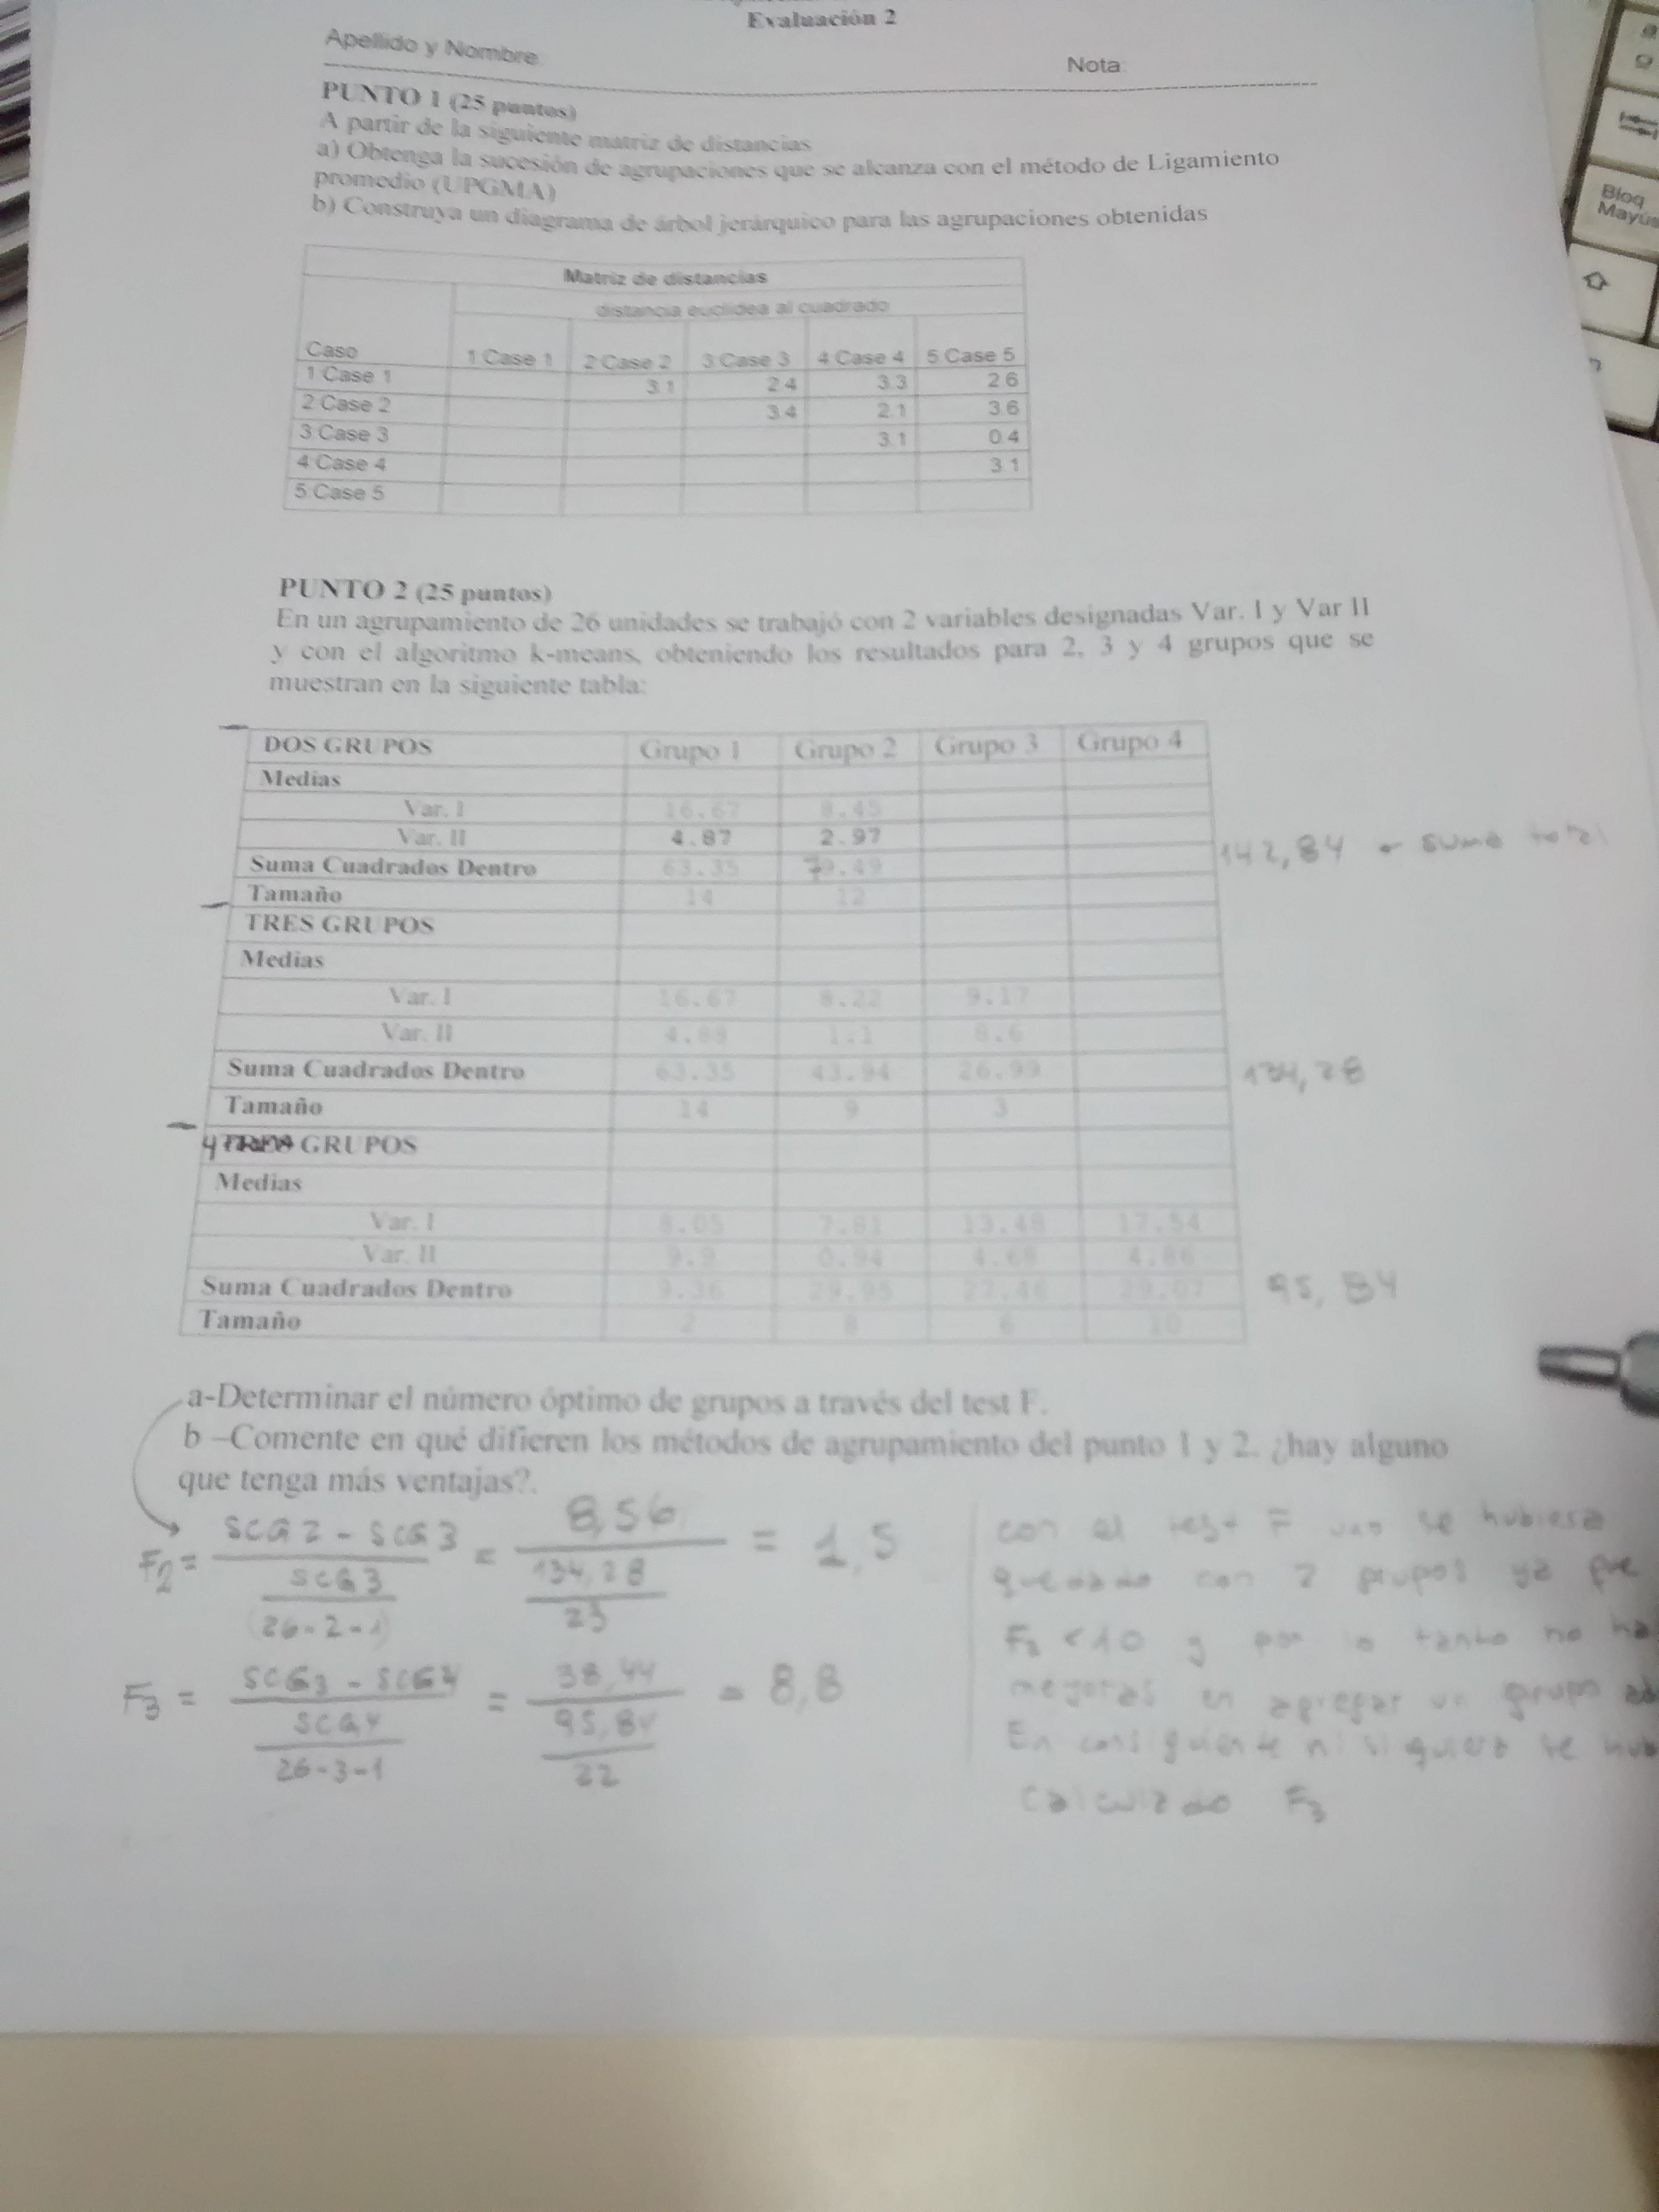 Evaluación 2
Apellido y Nombre
Nota
PUNTO 1 (25 puntos)
A partir de la siguiente matriz de distancias
a) Obtenga la sucesión de agrupaciones que se alcanza con el método de Ligamiento
promedio (UPGMA)
b) Construya un diagrama de árbol jerárquico para las agrupaciones obtenidas
Matriz de distancias
distancia euclídea al cuadrado
Caso 1:Case 1 2:Case 2 3:Case 3 4:Case 4 5:Case 5
1:Case 1 3.1 2.4 3.3 2.6
2:Case 2 3.4 2.1 3.6
3:Case 3 3.1 0.4
4:Case 4 3.1
5:Case 5
PUNTO 2 (25 puntos)
En un agrupamiento de 26 unidades se trabajó con 2 variables designadas Var. I y Var II
y con el algoritmo k-means, obteniendo los resultados para 2, 3 y 4 grupos que se
muestran en la siguiente tabla:
DOS GRUPOS Grupo 1 Grupo 2 Grupo 3 Grupo 4
Medias
Var. I 16.67 8.45
Var. II 4.87 2.97
142,84 suma total
Suma Cuadrados Dentro 63.35 79.49
Tamaño 14 12
TRES GRUPOS
Medias
Var. I 16.67 8.22 9.17
Var. II 4.88 1.1 8.6
Suma Cuadrados Dentro 63.35 43.94 26.99 134,28
Tamaño 14 9 3
4 GRUPOS
Medias
Var. I 8.05 7.81 13.48 17.54
Var. II 9.9 0.94 4.68 4.86
Suma Cuadrados Dentro 9.36 29.95 27.46 29.07 95,84
Tamaño 2 8 6 10
a-Determinar el número óptimo de grupos a través del test F.
b –Comente en qué difieren los métodos de agrupamiento del punto 1 y 2. ¿hay alguno
que tenga más ventajas?.
F2 = SCG2 - SCG3 / SCG3 / (26-2-1) = 8,56 / 134,28 / 23 = 1,5
F3 = SCG3 - SCG4 / SCG4 / 26-3-1 = 38,44 / 95,84 / 22 = 8,8
con el test F uno se hubiera
quedado con 2 grupos ya que
F2 < 10 y por lo tanto no
mejoras en agregar un grupo
En consiguiente ni siquiera se
calculado F3
Bloq
Mayús